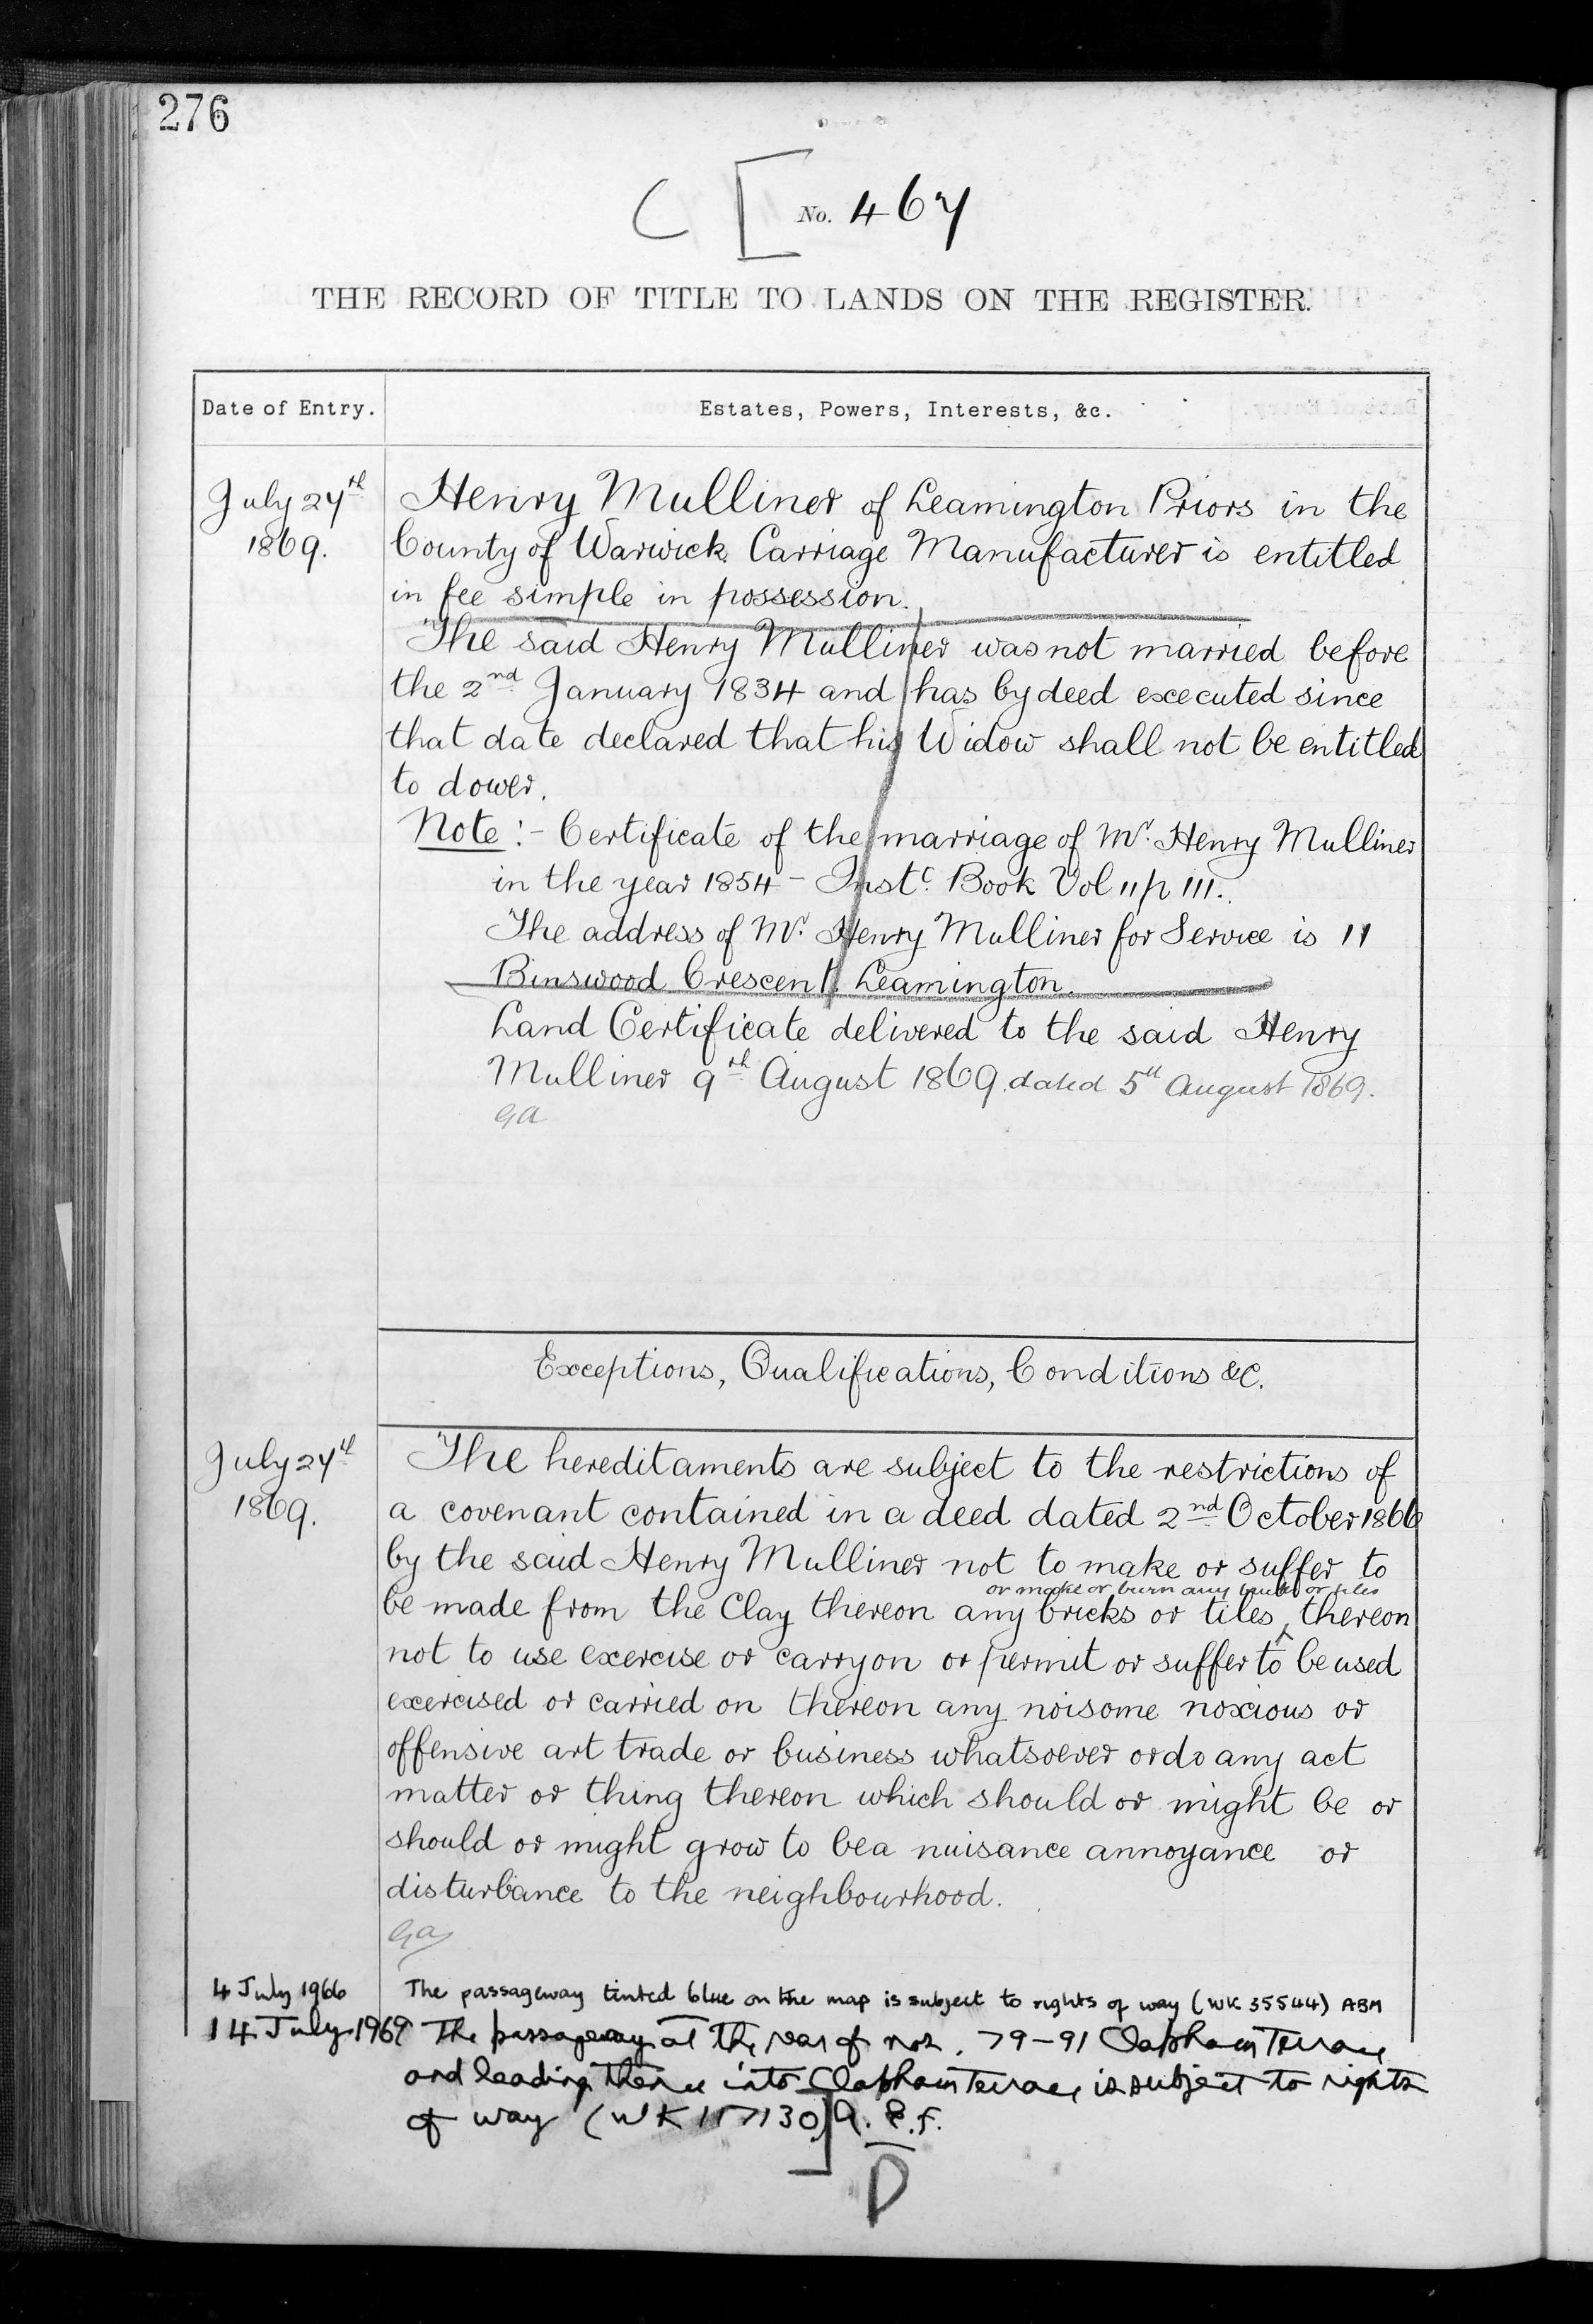 276
C [ No. 467
THE RECORD OF TITLE TO LANDS ON THE REGISTER.
Date of Entry.
Estates, Powers, Interests, &c.
July 27th
1869.
Henry Mulliner of Leamington Priors in the
County of Warwick Carriage Manufacturer is entitled
in fee simple in possession.
The said Henry Mulliner was not married before
the 2nd January 1834 and has by deed executed since
that date declared that his Widow shall not be entitled
to dower.
Note :- Certificate of the marriage of Mr. Henry Mulliner
in the year 1854 - Instc. Book Vol 11 p 111.
The address of Mr. Henry Mulliner for Service is 11
Binswood Crescent. Leamington.
Land Certificate delivered to the said Henry
Mulliner 9th August 1869. dated 5th August 1869.
Exceptions, Qualifications, Conditions &c.
July 27th
1869.
The hereditaments are subject to the restrictions of
a covenant contained in a deed dated 2nd October 1866
by the said Henry Mulliner not to make or suffer to
or make or burn any bricks or tiles
be made from the Clay thereon any bricks or tiles thereon
not to use exercise or carry on or permit or suffer to be used
exercised or carried on thereon any noisome noxious or
offensive art trade or business whatsoever or do any act
matter or thing thereon which should or might be or
should or might grow to be a nuisance annoyance or
disturbance to the neighbourhood.
4 July 1966
The passageway tinted blue on the map is subject to rights of way (WK 35544) ABM
14 July 1969 The passageway at the rear of nos. 79-91 Clapham Terrace
and leading thence into Clapham Terrace is subject to rights
of way (WK 117130) ]
D